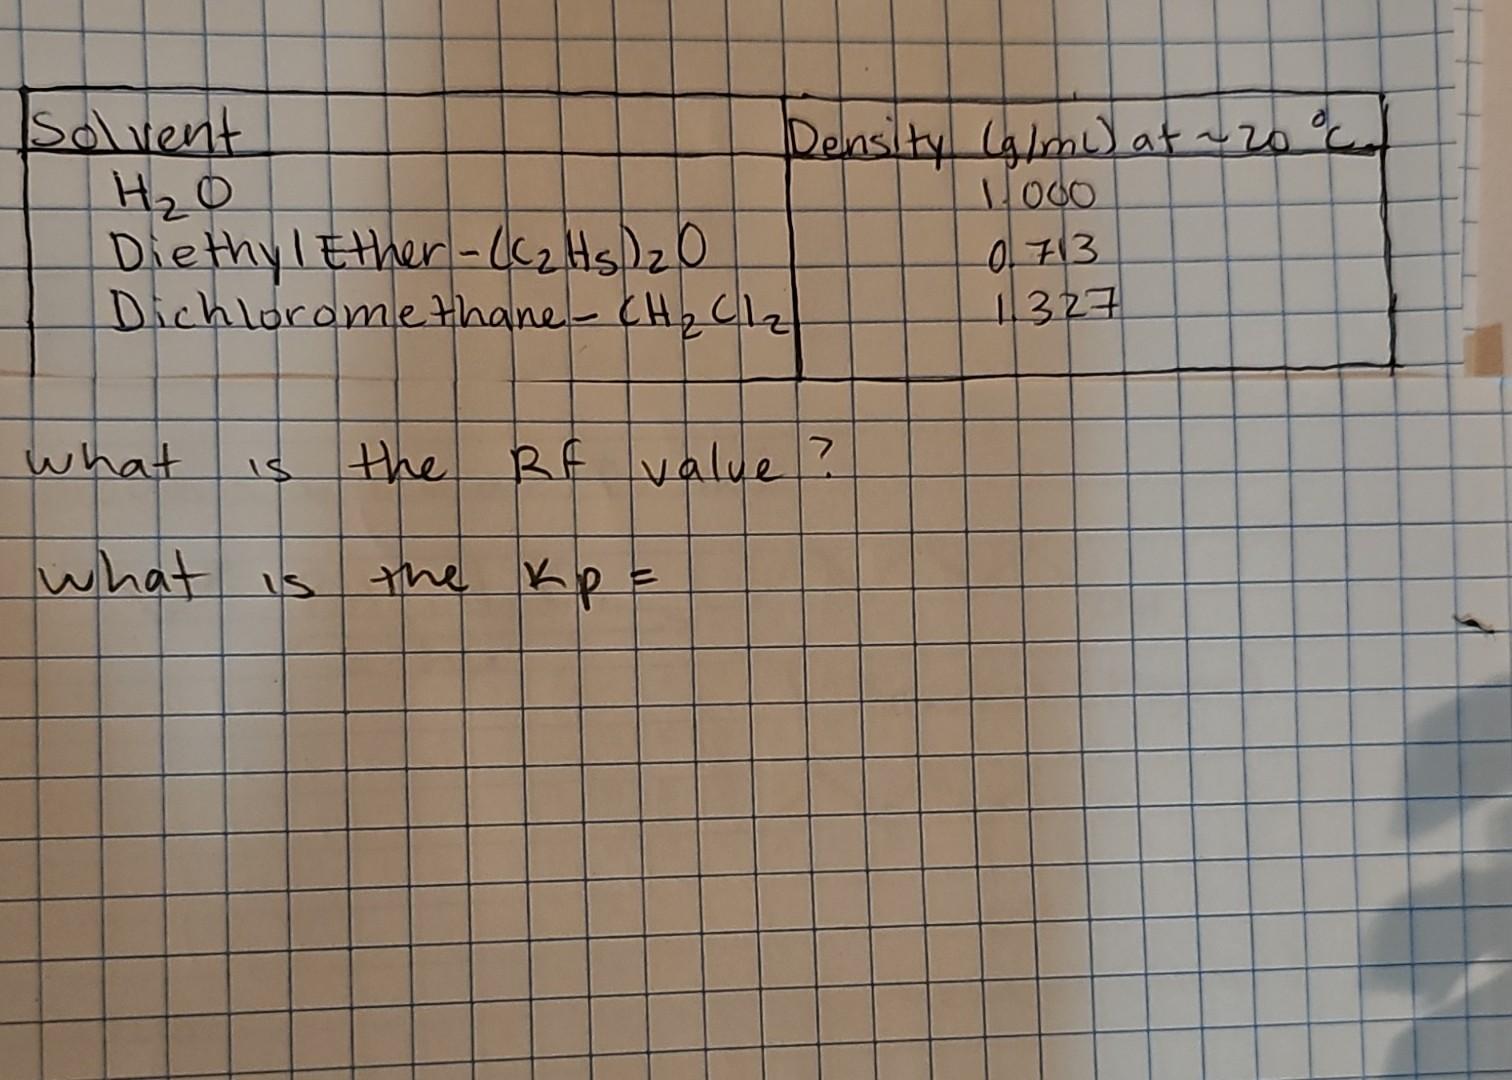 Solvent Density (g/mL) at ~20 °C
H₂O 1.000
Diethyl Ether-(C₂H₅)₂O 0.713
Dichloromethane-CH₂Cl₂ 1.327
what is the Rf value?
what is the Kp =